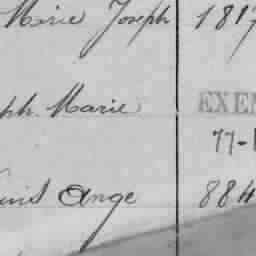 Marie Joseph 1817
ph Marie EXEM
77-
Ange 884